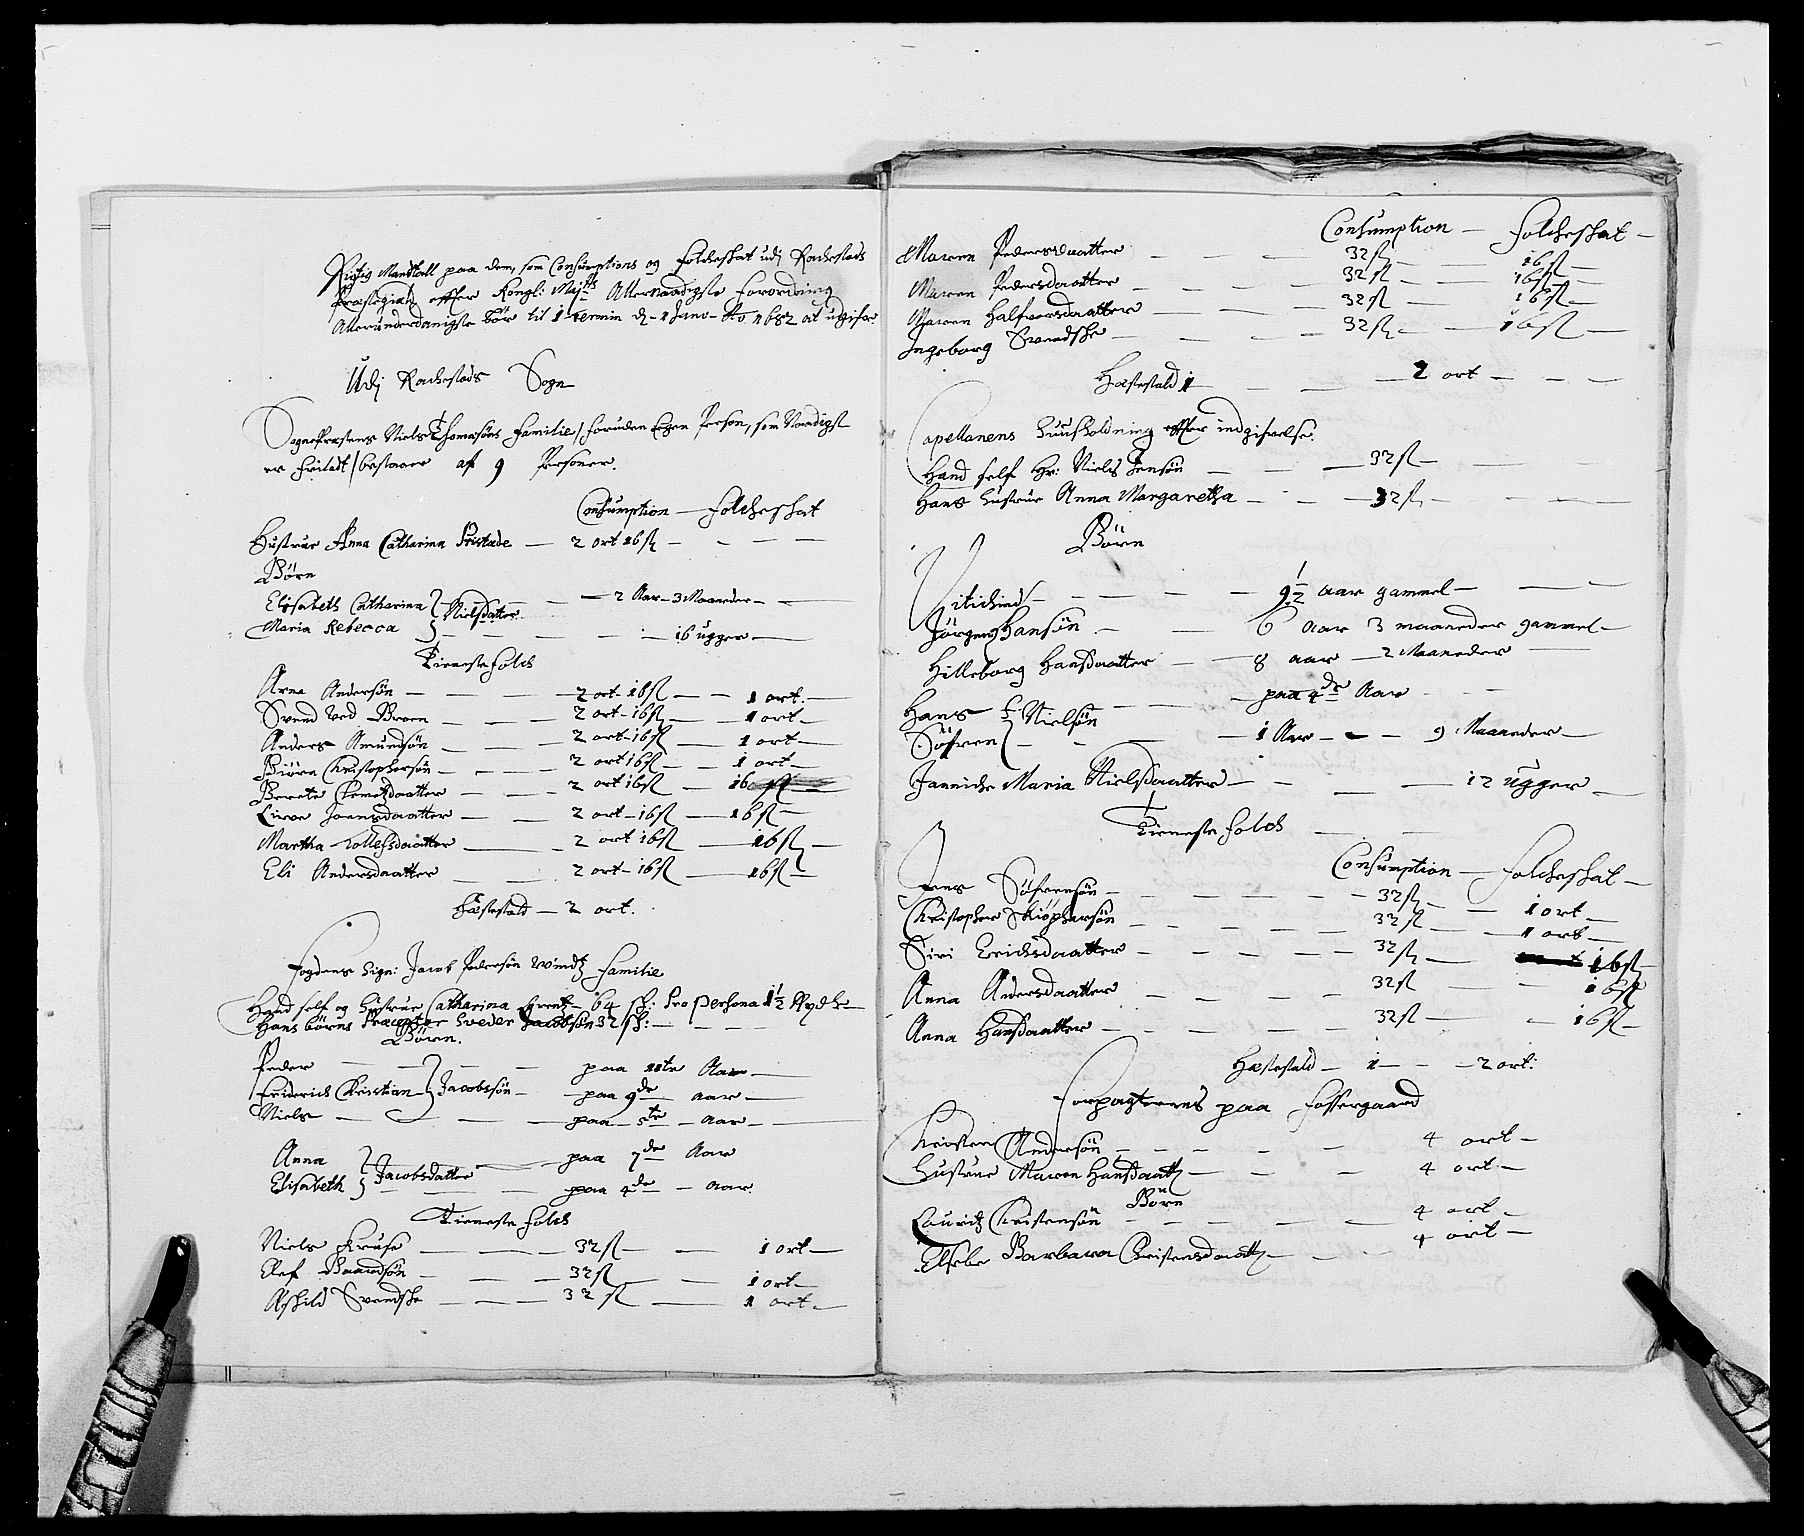 Rigtig Mandtall paa dem, som Consumptions og Folcheskat udj Rachestads
Præstegield effter Kongl: Mayts Allernaadigste Forordning
Allerunderdanigste bör til 1 Termin d. 1 Janv. Ao 1682 at udgifve
Udj Rachestads Sogn
Sognepræstens Niels Thomæsöns Familie / foruden Egen Person, som Naadigst
er fritadt / bestaaer af 9 Personer.
Consumption — Folcheskat
Hustrue Anna Catharina — 2 ort 16 sk — — —
Börn
Elisabeth Catharina } Nielsdatter — 2 Aar — 3 Maaneder —
Maria Rebecca } — — — 16 ugger —
Tieneste folch
Arne Andersön — — — 2 ort — 16 sk — — 1 ort —
Svend Ved Broen — — — 2 ort — 16 sk — 1 ort —
Anders Amundsön — — — 2 ort — 16 sk — 1 ort —
Biörn Christophersön — — — 2 ort 16 sk — 1 ort —
Berete — — 2 ort 16 sk — 16 sk
Live Joensdaatter — — 2 ort — 16 sk — 16 sk —
Martha Tollefsdaatter — 2 ort 16 sk — 16 sk —
Eli Andersdaatter — — 2 ort — 16 sk — 16 sk —
Hæstestald — 2 ort.
Fogdens Sign: Jacob Pedersön Windtz Familie
Hand self og Hustrue Catharina — 64 sk: Pro Persona 1½ Rixdlr
Hans börns Præceptor Jacobsön 32 sk: — —
Börn.
Peder — — — paa 11te Aar —
Friderich Christian } Jacobssön — paa 9de — aar —
Niels — — — paa — 5te — aar —
Anna } Jacobsdatter — paa 7de Aar
Elisabeth } — — paa 4de — aar.
Tieneste folch
Niels Kruse — — — 32 sk — — 1 ort —
Olef Baardsön — — — 32 sk — — 1 ort —
Ashild Svendsche — — — 32 sk — 1 ort —
Consumption — Folcheskat —
Maren Pedersdaatter — — — 32 sk — — 16 sk —
Maren Pedersdaatter — — — 32 sk — — 16 sk —
Maren Halfvorsdaatter — — — 32 sk — — 16 sk —
Ingeborg Svendsche — — — 32 sk — — 16 sk —
Hæstestald 1 — — — 2 ort — — —
Capellanens Huusholdning effter indgifvelse.
Hand self Hr: Niels Jensön — — — 32 sk — — —
Hans Hustrue Anna Margaretha — — — 32 sk — — —
Börn
Vitichind — — — — 9½ aar gammel — — —
Jörgen } Hansön — — 6 aar 3 maaneder gammel —
Hilleborg Hansdaatter — — 8 aar — 2 Maaneder —
Hans } Nielsön — — — paa 4de Aar — —
Söfren } — — — 1 Aar — — 9 Maaneder —
Jannicke Maria Nielsdaatter — — — 12 ugger —
Tieneste folch — —
Consumption — Folcheskat —
Jens Söfrensön — — — — 32 sk — — 1 ort —
Christopher — — — — 32 sk — — 1 ort —
Siri Erichsdaatter — — — — 32 sk — 16 sk
Anna Andersdaatter — — — — 32 sk — — 16 sk
Anna Hansdaatter — — — — 32 sk — — 16 sk —
Hæstestald — 1 — — 2 ort:
Forpagterens paa Fossergaard
Christen Andersön — — — — 4 ort —
Hustrue Maren Hansdaatt — — — 4 ort —
Börn
Lauritz Christensön — — — — 4 ort —
Elsebe Barbara Christensdaatt — — — 4 ort —